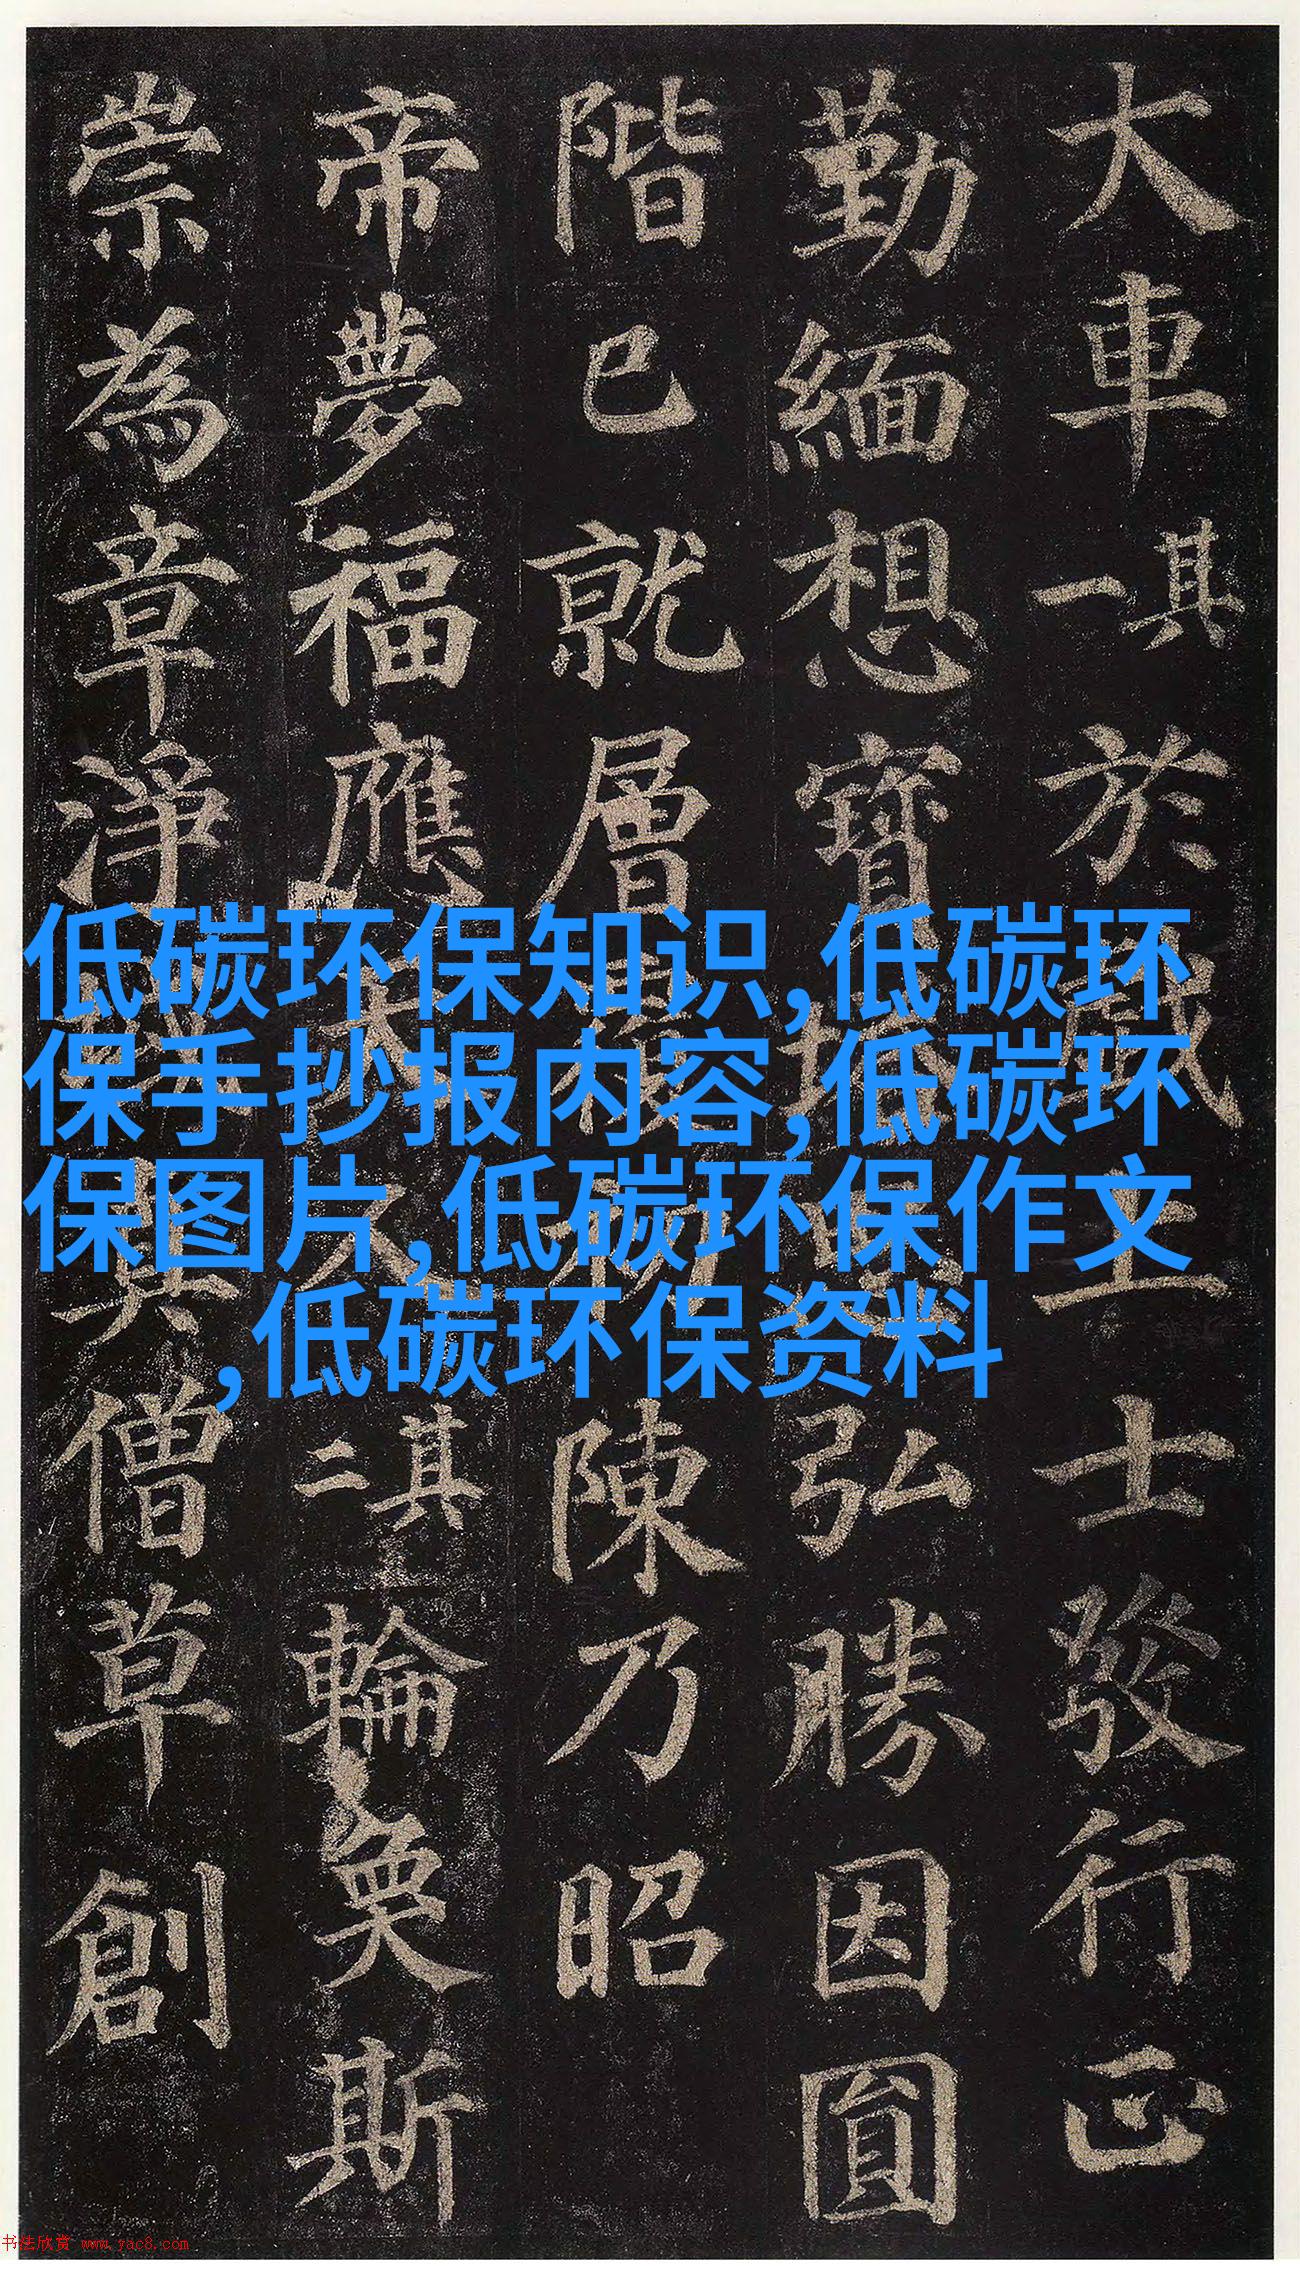 大車其一於戲上士發行正
勤緬想寶塔思弘勝因圓
階已就層覆初陳乃昭
帝夢福應天人其二輪奐斯
崇為章淨域真僧草創
低碳环保知识,低碳环
保手抄报内容,低碳环
保图片,低碳环保作文
,低碳环保资料
书法欣赏 www.yac8.com